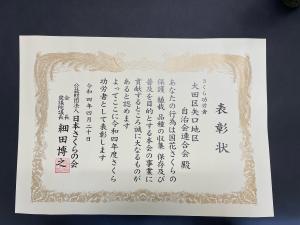 表彰状
さくら功労者
大田区矢口地区
自治会連合会殿
あなたの行為は国花さくらの
保護 植栽 品種の収集 保存及び
普及を目的とする本会の事業に
貢献するところ誠に大なるものが
あると認めます
よってここに令和四年度さくら
功労者として表彰します
令和四年四月二十日
公益財団法人 日本さくらの会
会長
衆議院議長
細田博之